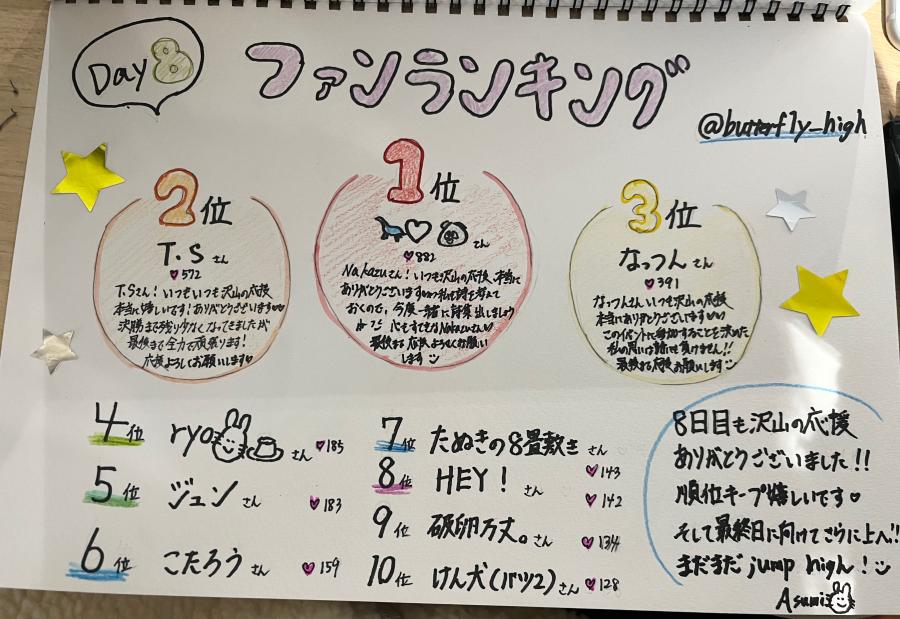 Day 8
ファンランキング
@butterfly_high
1位
さん
882
Nakazuさん！いつも沢山の応援、本当に
ありがとうございます
おくので、今度一緒に
最後まで応援よろしくお願い
します
2位
T.S さん
572
T.Sさん！いつもいつも沢山の応援
本当に嬉しいです！ありがとうございます♡♡
決勝まで残り少なくなってきましたが
最後まで全力で頑張ります！
応援よろしくお願いします♡
3位
なっつん さん
391
なっつんさんいつも沢山の応援
本当にありがとうございます
このイベントに参加することを決めた
私の思いは誰にも負けません!!
最後まで応援お願いします
4位 ryo さん 185
5位 ジュン さん 183
6位 こたろう さん 159
7位 たぬきの8畳敷き さん 143
8位 HEY！ さん 142
9位 破卵万丈。さん 134
10位 けん犬(バツ2)さん 128
8日目も沢山の応援
ありがとうございました!!
順位キープ嬉しいです♡
そして最終日に向けてさらに上へ!!
まだまだ jump high！
Asumi